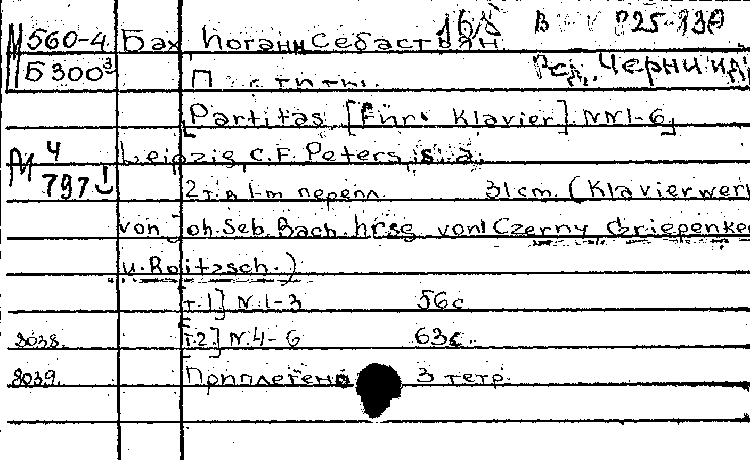 М560-4 Бах, Иоганн Себастьян. 16/5 В 825-830
Б300³ П ртиты. Ред. Черни и др
[Partitas [Für Klavier] NN1-6]
М 4 Leipzig, C.F. Peters, s. a.
797J 2 т. в 1-m перепл. 31cm. (Klavierwerk
von Joh. Seb. Bach hrsg von Czerny Griepenke
u. Roitzsch.)
[т.1] N.1-3 56с
8038. [т.2] N.4-6 63с.
8039. Приплетено 3 тетр.